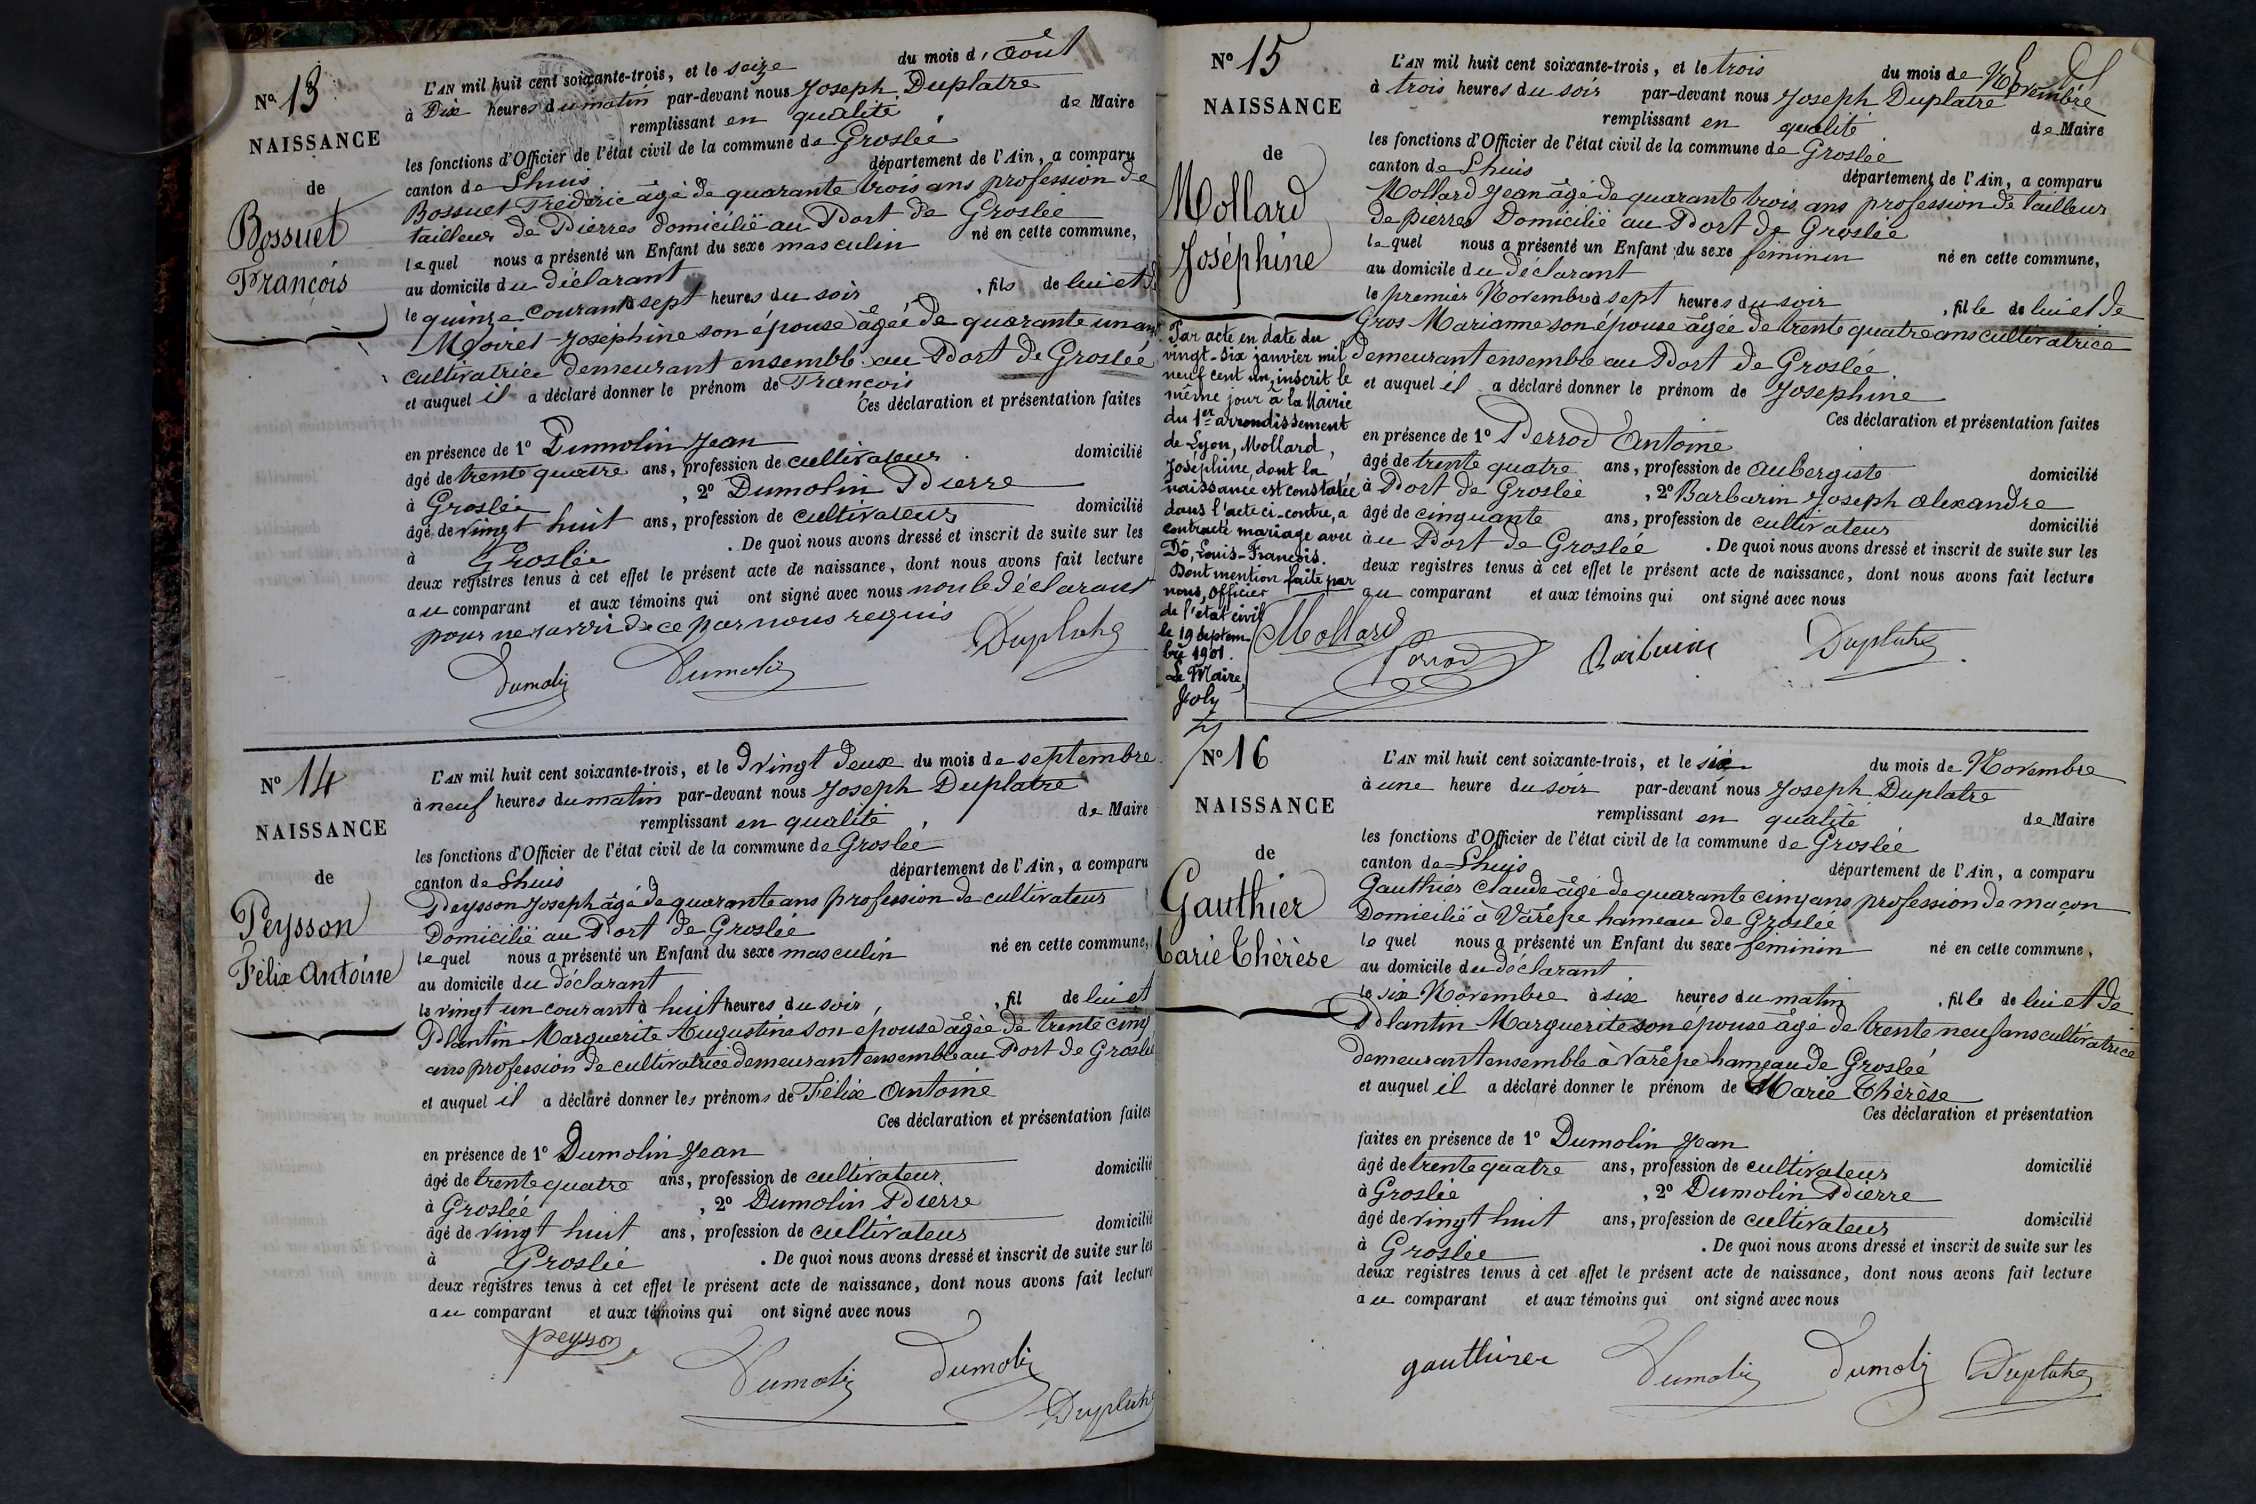 Nº 13
NAISSANCE
de
Bossuet
François
L'AN mil huit cent soixante-trois, et le seize du mois d'août
à Dix heures du matin par-devant nous Joseph Duplatre
remplissant en qualité de Maire
les fonctions d'Officier de l'état civil de la commune de Groslée
canton de Lhuis département de l'Ain, a comparu
Bossuet Fréderic âgé de quarante trois ans profession de
tailleur de Pierres domicilié au Port de Groslée
lequel nous a présenté un Enfant du sexe masculin né en cette commune,
au domicile du déclarant
le quinze courant à sept heures du soir, fils de lui et de
Moiret Joséphine son épouse âgée de quarante un ans
cultivatrice demeurant ensemble au Port de Groslée
et auquel il a déclaré donner le prénom de François
Ces déclaration et présentation faites
en présence de 1º Dumolin Jean
âgé de trente quatre ans, profession de cultivateur domicilié
à Groslée, 2º Dumolin Pierre
âgé de vingt huit ans, profession de cultivateur domicilié
à Groslée. De quoi nous avons dressé et inscrit de suite sur les
deux registres tenus à cet effet le présent acte de naissance, dont nous avons fait lecture
au comparant et aux témoins qui ont signé avec nous non le déclarant
pour ne savoir de ce par nous requis
Dumolin Dumolin Duplatre
Nº 14
NAISSANCE
de
Peysson
Félix Antoine
L'AN mil huit cent soixante-trois, et le vingt deux du mois de septembre
à neuf heures du matin par-devant nous Joseph Duplatre
remplissant en qualité de Maire
les fonctions d'Officier de l'état civil de la commune de Groslée
canton de Lhuis département de l'Ain, a comparu
Peysson Joseph âgé de quarante ans profession de cultivateur
Domicilié au Port de Groslée
lequel nous a présenté un Enfant du sexe masculin né en cette commune,
au domicile du déclarant
le vingt un courant à huit heures du soir, fil de lui et
Plantin Marguerite Augustine son épouse âgée de trente cinq
ans profession de cultivatrice demeurant ensemble au Port de Groslée
et auquel il a déclaré donner les prénoms de Félix Antoine
Ces déclaration et présentation faites
en présence de 1º Dumolin Jean
âgé de trente quatre ans, profession de cultivateur domicilié
à Groslée, 2º Dumolin Pierre
âgé de vingt huit ans, profession de cultivateur domicilié
à Groslée. De quoi nous avons dressé et inscrit de suite sur les
deux registres tenus à cet effet le présent acte de naissance, dont nous avons fait lecture
au comparant et aux témoins qui ont signé avec nous
peysson Dumolin Dumolin
Duplatre
Nº 15
NAISSANCE
de
Mollard
Joséphine
Par acte en date du
vingt-six janvier mil
neuf cent un, inscrit le
même jour à la Mairie
du 1er arrondissement
de Lyon, Mollard,
Joséphine, dont la
naissance est constatée
dans l'acte ci-contre, a
contracté mariage avec
Dô, Louis-François.
Dont mention faite par
nous, Officier
de l'état civil
le 19 Septem-
bre 1901.
Le Maire,
Joly
L'AN mil huit cent soixante-trois, et le trois du mois de Novembre
à trois heures du soir par-devant nous Joseph Duplatre
remplissant en qualité de Maire
les fonctions d'Officier de l'état civil de la commune de Groslée
canton de Lhuis département de l'Ain, a comparu
Mollard Jean âgé de quarante trois ans profession de tailleur
de pierres Domicilié au Port de Groslée
lequel nous a présenté un Enfant du sexe féminin né en cette commune,
au domicile du déclarant
le premier Novembre à sept heures du soir, fille de lui et de
Gros Marianne son épouse âgée de trente quatre ans cultivatrice
demeurant ensemble au Port de Groslée.
et auquel il a déclaré donner le prénom de Josephine
Ces déclaration et présentation faites
en présence de 1º Perrod Antoine
âgé de trente quatre ans, profession de aubergiste domicilié
à Port de Groslée, 2º Barbarin Joseph alexandre
âgé de cinquante ans, profession de cultivateur domicilié
à au Port de Groslée. De quoi nous avons dressé et inscrit de suite sur les
deux registres tenus à cet effet le présent acte de naissance, dont nous avons fait lecture
au comparant et aux témoins qui ont signé avec nous
Mollard Perrod Barbarin Duplatre
Nº 16
NAISSANCE
de
Gauthier
Marie Thérèse
L'AN mil huit cent soixante-trois, et le six du mois de Novembre
à une heure du soir par-devant nous Joseph Duplatre
remplissant en qualité de Maire
les fonctions d'Officier de l'état civil de la commune de Groslée
canton de Lhuis département de l'Ain, a comparu
Gauthier Claude âgé de quarante cinq ans profession de maçon
Domicilié à Varèpe hameau de Groslée
lequel nous a présenté un Enfant du sexe féminin né en cette commune,
au domicile du déclarant
le six Novembre à six heures du matin, fille de lui et de
Plantin Marguerite son épouse âgé de trente neuf ans cultivatrice
demeurant ensemble à Varèpe hameau de Groslée
et auquel il a déclaré donner le prénom de Marie Thérèse
Ces déclaration et présentation
faites en présence de 1º Dumolin Jean
âgé de trente quatre ans, profession de cultivateur domicilié
à Groslée, 2º Dumolin Pierre
âgé de vingt huit ans, profession de cultivateur domicilié
à Groslée. De quoi nous avons dressé et inscrit de suite sur les
deux registres tenus à cet effet le présent acte de naissance, dont nous avons fait lecture
au comparant et aux témoins qui ont signé avec nous
gauthier Dumolin Dumolin Duplatre